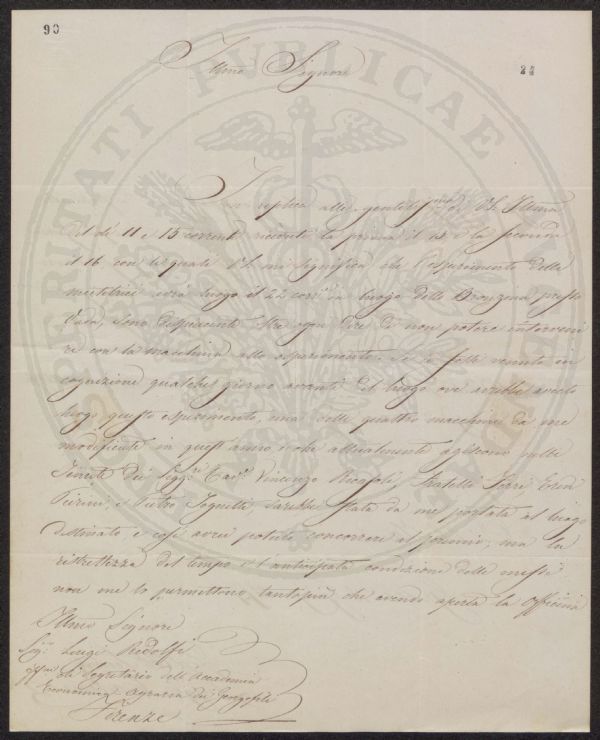 90
24
Illmo Signore
In replica alle gentilissime di VS. Illma
del dì 11 e 13 corrente ricevute la prima il 13 e la seconda
il 16 con la quale VS. mi significa che l'esperimento delle
mietitrici avrà luogo il 22 corr. in luogo detto Bronzina presso
Vada, sono dispiacente oltre ogni dire di non potere interveni
re con la macchina allo esperimento. Se io fossi venuto in
cognizione qualche giorno avanti del luogo ove avrebbe avuto
luogo questo esperimento, una delle quattro macchine da me
modificate in quest'anno e che attualmente agiscono nelle
Tenute dei Sigg. Cav. Vincenzo Ricasoli, Fratelli
e Pietro sarebbe stata da me portata al luogo
destinato, e così avrei potuto concorrere al premio, ma la
ristrettezza del tempo e l'anticipata condizione delle messi
non me lo permettono tantopiù che avendo aperta la Officina
Illmo Signore
Sig. Luigi Ridolfi
di Segretario dell'Accademia
Economico Agraria dei Georgofili
Firenze
PROSPERITATI PUBLICAE AUGENDAE